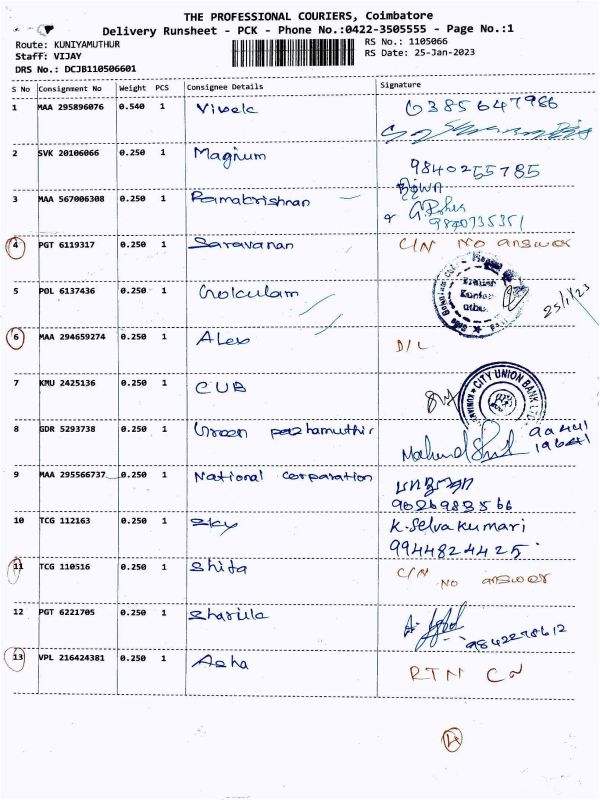 THE PROFESSIONAL COURIERS, Coimbatore
Delivery Runsheet - PCK - Phone No.:0422-3505555 - Page No.:1
Route: KUNIYAMUTHUR
RS No.: 1105066
Staff: VIJAY
RS Date: 25-Jan-2023
DRS No.: DCJB110506601
S No Consignment No Weight PCS Consignee Details Signature
1 MAA 295896076 0.540 1 Vivek 6385647986
2 SVK 20106066 0.250 1 Magnum 9840255785
3 MAA 567006308 0.250 1 Ramakrishnan
9840735351
4 PGT 6119317 0.250 1 Saravanan C/N No answer
5 POL 6137436 0.250 1 Gokulam 25/1/23
6 MAA 294659274 0.250 1 Alex D/L
7 KMU 2425136 0.250 1 CUB CITY UNION BANK LTD
8 GDR 5293738 0.250 1 Green pazhamuthir
9 MAA 295566737 0.250 1 National corporation
10 TCG 112163 0.250 1 Sky K. Selvakumari
9944824425
11 TCG 110516 0.250 1 Shifa C/N
No answer
12 PGT 6221705 0.250 1 Sharilla
9842298612
13 VPL 216424381 0.250 1 Asha RTN CN